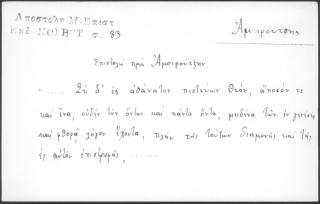 Ἀποστόλη Μ. Ἐπιστ
Ἐκδ. NOIRET σ. 83
Ἀμιρούτσης
Ἐπιστολή πρὸς Ἀμοιρούτζην
"..... Σὺ δ' εἰς ἀθάνατον πιστεύων Θεόν, ἄποιόν τε
καὶ ἕνα, οὐδὲν τῶν ὄντων καὶ πάντα ὄντα, μηδένα τῶν ἐν γενέσει
καὶ φθορᾷ λόγον ἔχοντα, πλὴν τῆς τούτων διαμονῆς καὶ τῆς
ἐς αὐτὸν ἐπιστροφῆς, .......